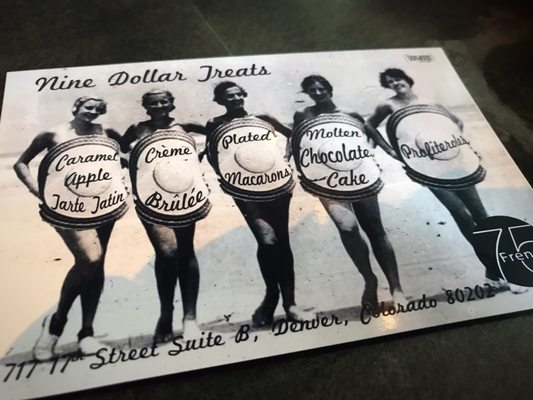 Nine Dollar Treats
Caramel
Apple
Tarte Tatin
Crème
Brûlée
Plated
Macarons
Molten
Chocolate
Cake
Profiteroles
75
Fren
717 17th Street Suite B, Denver, Colorado 80202